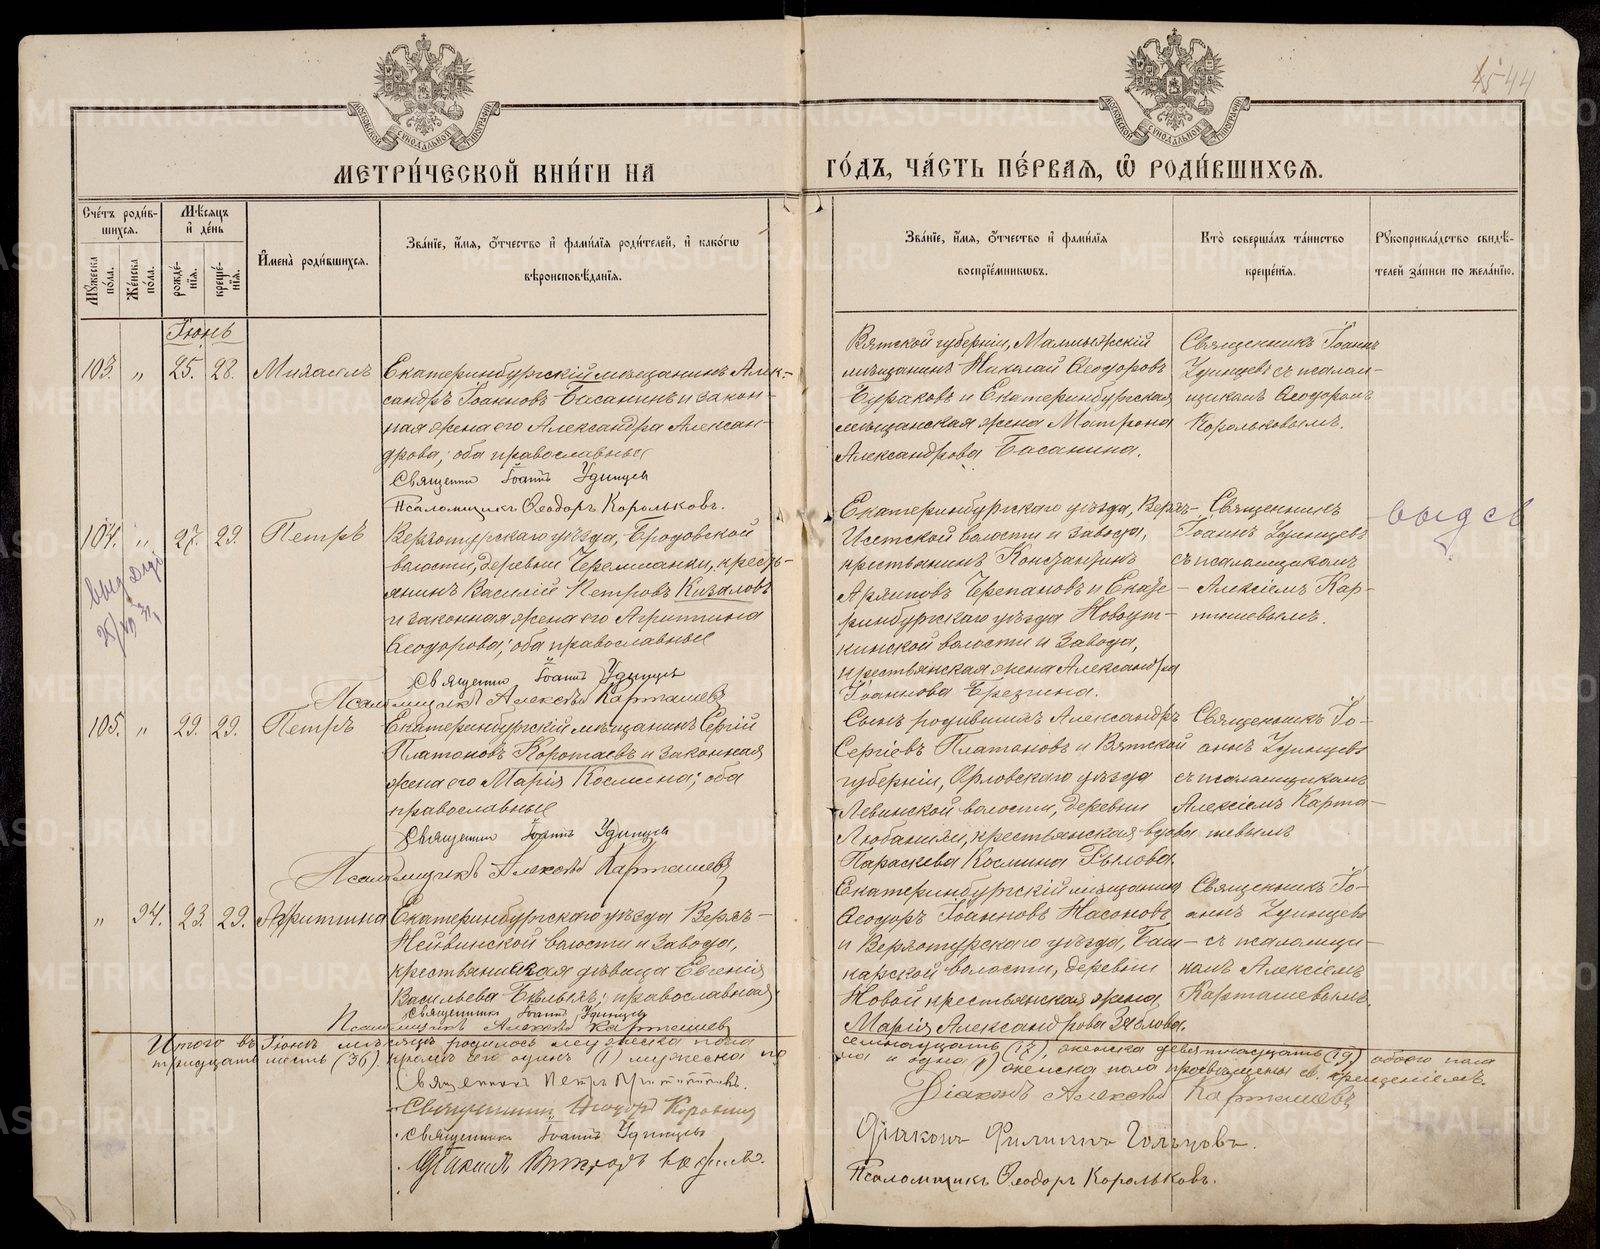 44
МОСКОВСКОЙ СѴНОДАЛЬНОЙ ТИПОГРАФІИ
МОСКОВСКОЙ СѴНОДАЛЬНОЙ ТИПОГРАФІИ
МЕТРИ́ЧЕСКОЙ КНИ́ГИ НА
ГО́ДЪ, ЧА́СТЬ ПЕ́РВАѦ, Ѡ҆ РОДИ́ВШИХСѦ.
Сче́тъ роди́в-
шихся.
Мѣ́сяцъ
и҆ де́нь
И҆мена̀ роди́вшихся.
Зва́нїе, и҆́мя, ѻ҆́тчество и҆ фами́лїя роди́телей, и҆ како́гѡ
вѣроисповѣ́данїя.
Му́жеска по́ла.
Же́нска по́ла.
рожде́-
нїя.
креще́-
нїя.
Зва́нїе, и҆́мя, ѻ҆́тчество и҆ фами́лїя
воспрїе́мниковъ.
Кто̀ соверша́лъ та́инство
креще́нїя.
Рꙋкоприкла́дство свидѣ́-
телей за́писи по жела́нїю.
Іюнь
103. „ 25. 28. Михаилъ
Екатеринбургскій мѣщанинъ Алек-
сандръ Іоанновъ Басанинъ и закон-
ная жена его Александра Алексан-
дрова; оба православные
Священникъ Іоаннъ Удинцевъ
Псаломщикъ Ѳеодоръ Корольковъ.
Вятской губерніи, Малмыжскій
мѣщанинъ Николай Ѳеодоровъ
Бураковъ и Екатеринбургская
мѣщанская жена Матрона
Александрова Басанина.
Священникъ Іоаннъ
Удинцевъ съ псалом-
щикомъ Ѳеодоромъ
Корольковымъ.
104. „ 27. 29. Петръ
Верхотурскаго уѣзда, Бродовской
волости, деревни Черемшанки, кресть-
янинъ Василій Петровъ Кизаловъ
и законная жена его Агриппина
Ѳеодорова; оба православные
Священникъ Іоаннъ Удинцевъ
Псаломщикъ Алексѣй Карташевъ
Екатеринбургскаго уѣзда, Верхъ-
Исетской волости и завода,
крестьянинъ Константинъ
Архиповъ Черепановъ и Екате-
ринбургскаго уѣзда Новоут-
кинской волости и завода,
крестьянская жена Александра
Іоаннова Брезгина.
Священникъ
Іоаннъ Удинцевъ
съ псаломщикомъ
Алексіемъ Кар-
ташевымъ.
105. „ 29. 29. Петръ
Екатеринбургскій мѣщанинъ Сергій
Платоновъ Коротаевъ и законная
жена его Марія Космина; оба
православные
Священникъ Іоаннъ Удинцевъ
Псаломщикъ Алексѣй Карташевъ
Сынъ родившихъ Александръ
Сергіевъ Платоновъ и Вятской
губерніи, Орловскаго уѣзда
Левинской волости, деревни
крестьянская вдова
Параскева Космина Рылова.
Священникъ Іо-
аннъ Удинцевъ
съ псаломщикомъ
Алексіемъ Карта-
шевымъ
„ 94. 23. 29. Агриппина
Екатеринбургскаго уѣзда Верхъ-
Нейвинской волости и завода,
крестьянская дѣвица Евгенія
Васильева Бѣлыхъ; православная.
Священникъ Іоаннъ Удинцевъ
Псаломщикъ Алексѣй Карташевъ
Екатеринбургскій мѣщанинъ
Ѳеодоръ Іоанновъ Насоновъ
и Верхотурскаго уѣзда, Баш-
карской волости, деревни
Новой крестьянская жена
Марія Александрова Зяблова.
Священникъ Іо-
аннъ Удинцевъ
съ псаломщи-
комъ Алексіемъ
Карташевымъ
Итого въ Іюнѣ мѣсяцѣ родилось мужеска пола семнадцать (17), женска девятнадцать (19) обоего пола
тридцать шесть (36). кромѣ сего одинъ (1) мужеска по-
ла и одна (1) женска пола просвѣщены св. крещеніемъ.
Священникъ Петръ
Священникъ Ѳеодоръ
Священникъ Іоаннъ Удинцевъ
Діаконъ Алексѣй Карташевъ
Діаконъ Филиппъ Гольцовъ.
Псаломщикъ Ѳеодоръ Корольковъ.